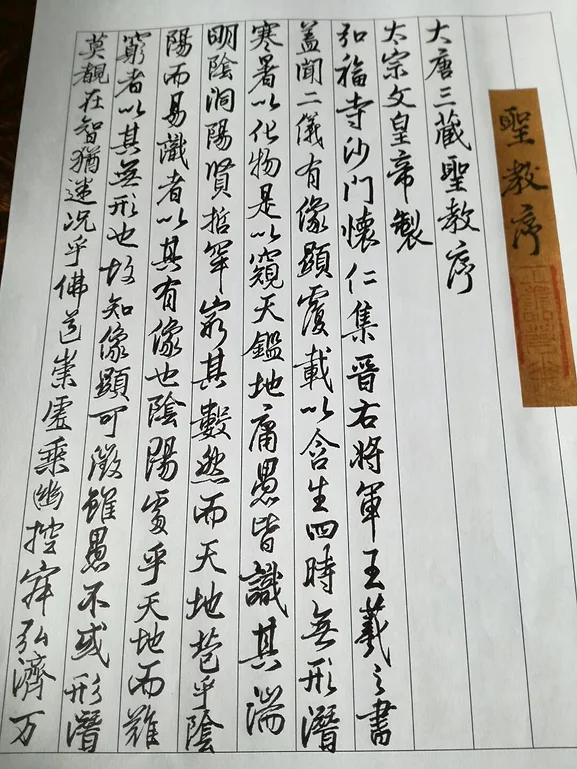 聖教序
大唐三藏聖教序
太宗文皇帝製
弘福寺沙門懷仁集晉右將軍王羲之書
蓋聞二儀有像顯覆載以含生四時無形潛
寒暑以化物是以窺天鑑地庸愚皆識其端
明陰洞陽賢哲罕窮其數然而天地苞乎陰
陽而易識者以其有像也陰陽處乎天地而難
窮者以其無形也故知像顯可徵雖愚不或形潛
莫覩在智猶迷況乎佛道崇虛乘幽控寂弘濟万